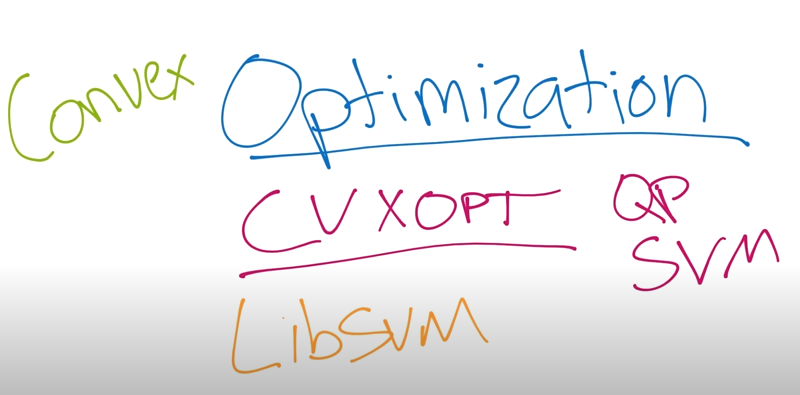 Convex Optimization
CVXOPT QP
SVM
LibSVM